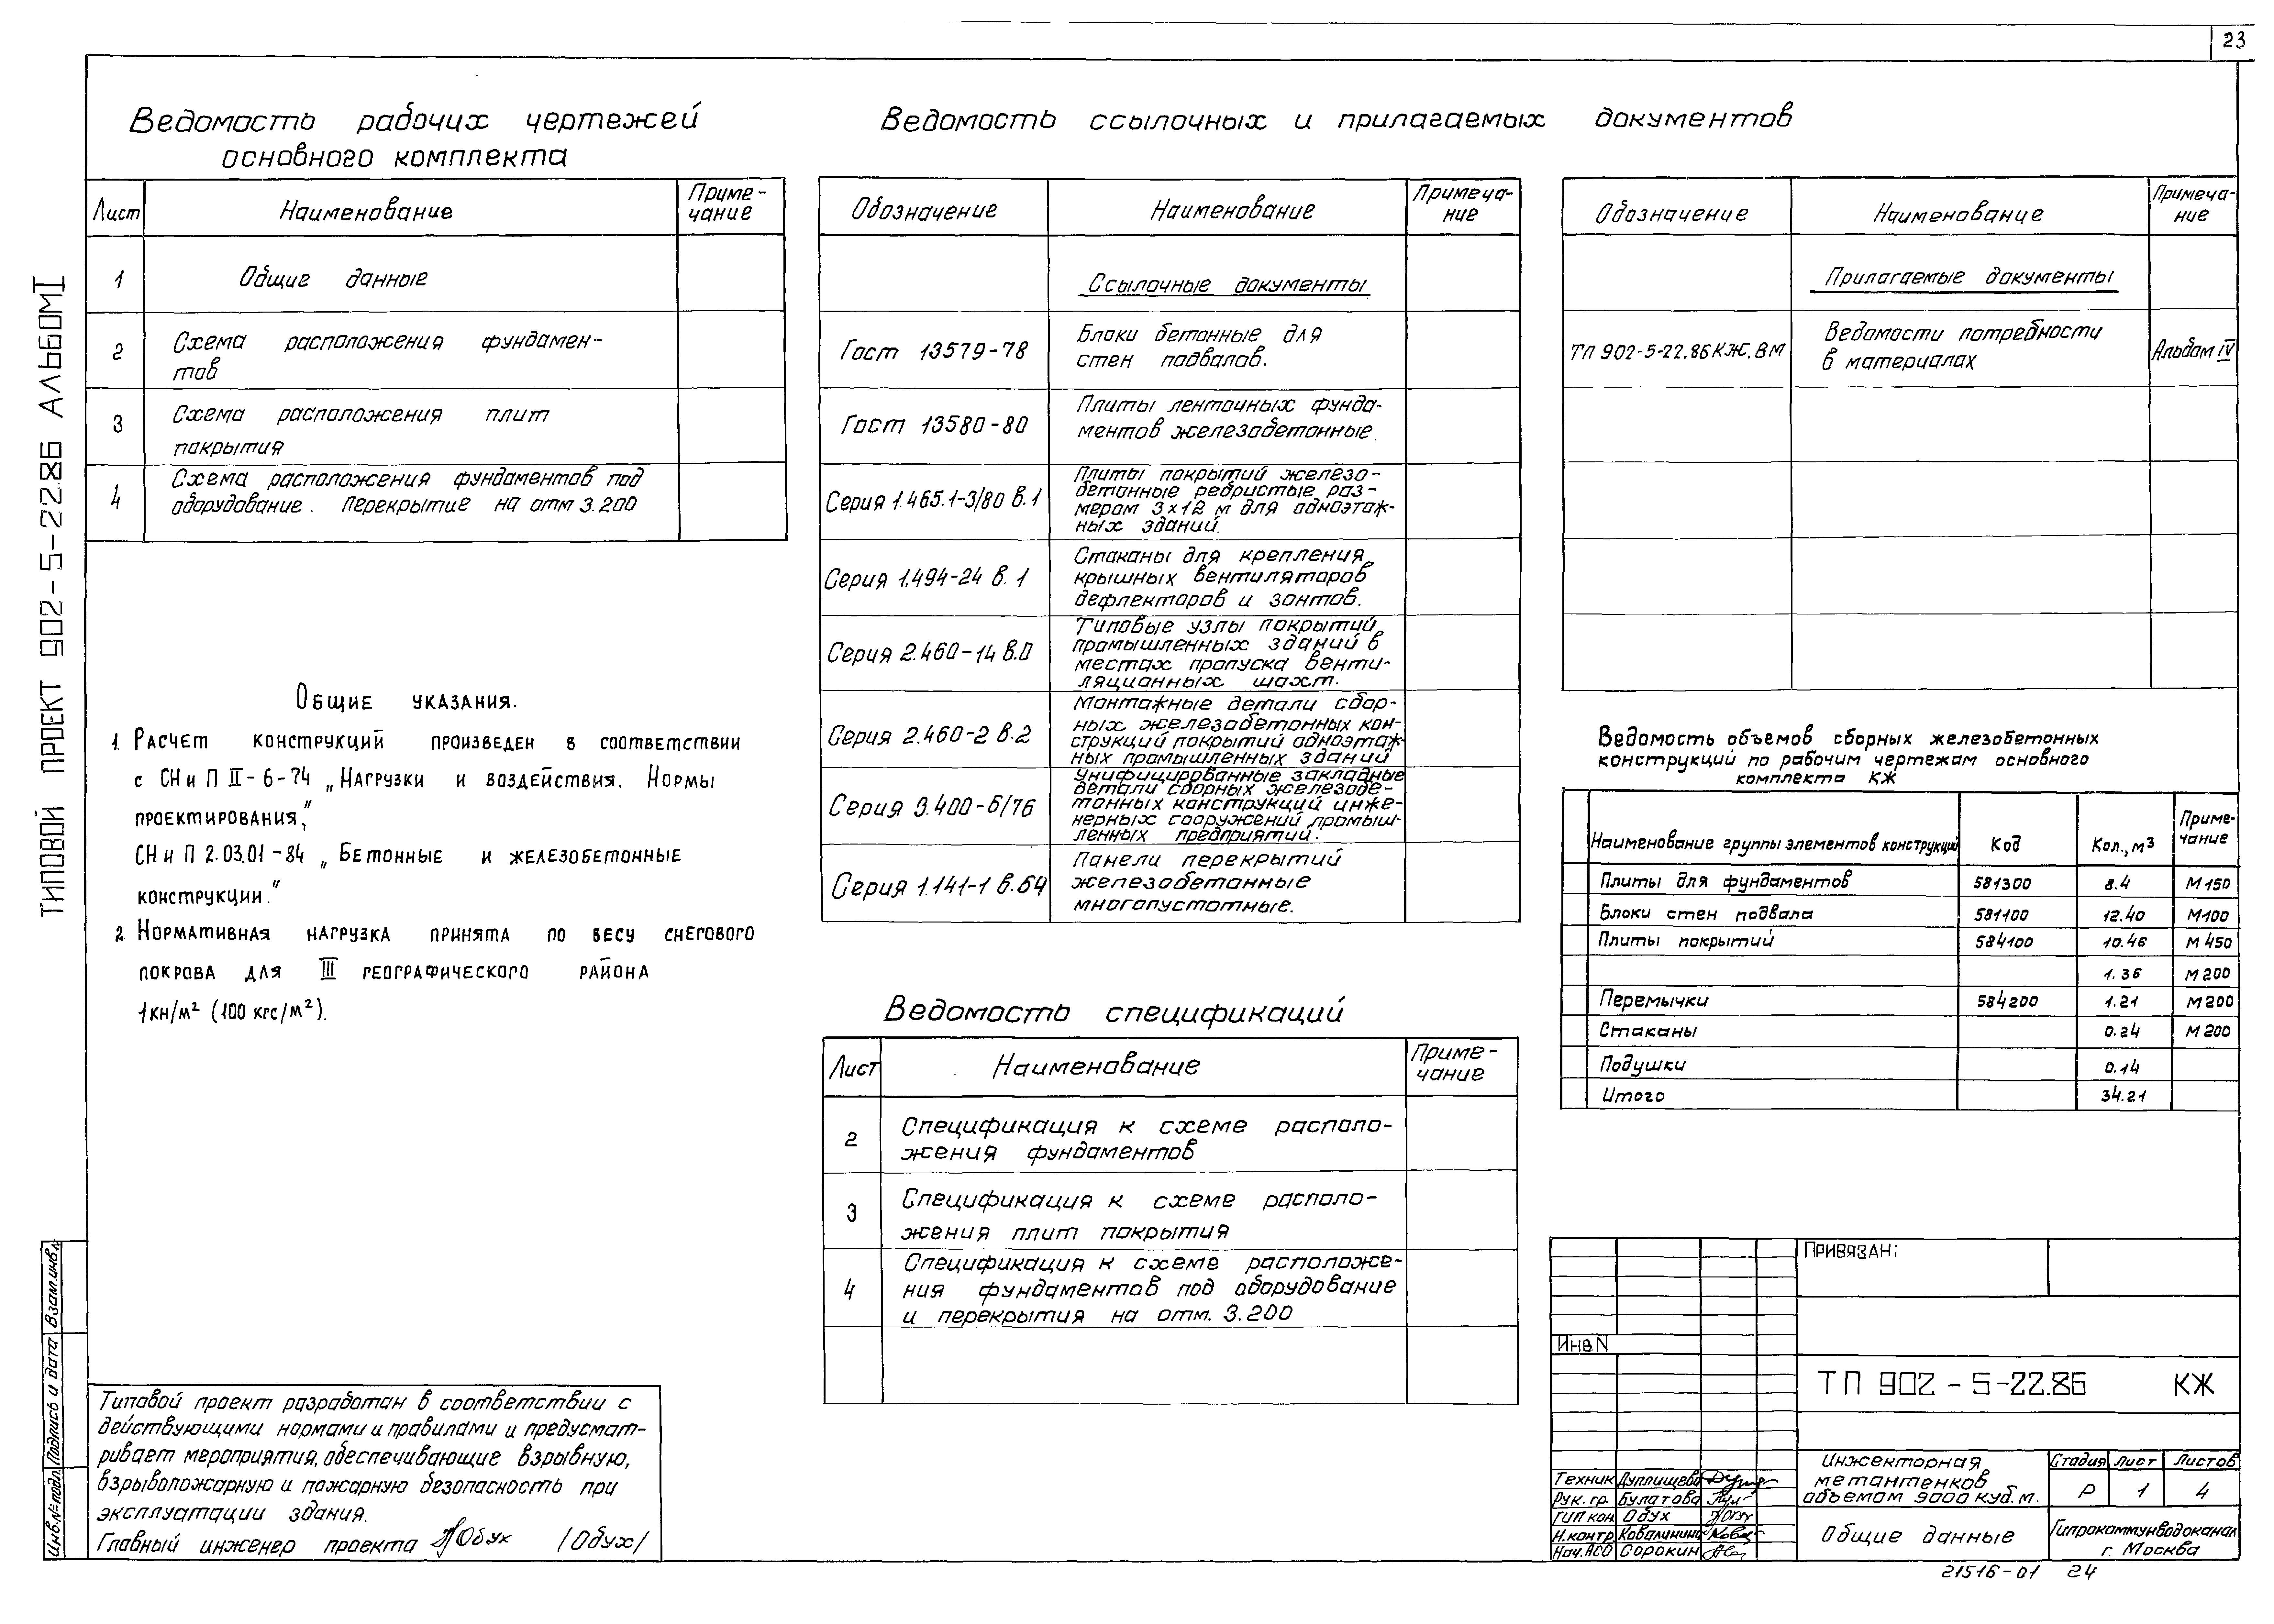 23
ТИПОВОЙ ПРОЕКТ 902-5-22.86 АЛЬБОМ I
Ведомость рабочих чертежей
основного комплекта
Лист
Наименование
Приме-
чание
1
Общие данные
2
Схема расположения фундамен-
тов
3
Схема расположения плит
покрытия
4
Схема расположения фундаментов под
оборудование. Перекрытие на отм 3.200
Общие указания.
1. Расчет конструкций произведен в соответствии
с СН и П II-6-74 „Нагрузки и воздействия. Нормы
проектирования,"
СН и П 2.03.01-84 „Бетонные и железобетонные
конструкции."
2. Нормативная нагрузка принята по весу снегового
покрова для III географического района
1кн/м² (100 кгс/м²).
Типовой проект разработан в соответствии с
действующими нормами и правилами и предусмат-
ривает мероприятия, обеспечивающие взрывную,
взрывопожарную и пожарную безопасность при
эксплуатации здания.
Главный инженер проекта Обух /Обух/
Инв.№ подл.
Подпись и дата
Взам.инв.№
Ведомость ссылочных и прилагаемых документов
Обозначение
Наименование
Примеча-
ние
Ссылочные документы
Гост 13579-78
Блоки бетонные для
стен подвалов.
Гост 13580-80
Плиты ленточных фунда-
ментов железобетонные.
Серия 1.465.1-3/80 в.1
Плиты покрытий железо-
бетонные ребристые раз-
мером 3х12 м для одноэтаж-
ных зданий.
Серия 1.494-24 в.1
Стаканы для крепления
крышных вентиляторов
дефлекторов и зонтов.
Серия 2.460-14 в.0
Типовые узлы покрытий
промышленных зданий в
местах пропуска венти-
ляционных шахт.
Серия 2.460-2 в.2
Монтажные детали сбор-
ных железобетонных кон-
струкций покрытий одноэтаж-
ных промышленных зданий
Серия 3.400-6/76
Унифицированные закладные
детали сборных железобе-
тонных конструкций инже-
нерных сооружений промыш-
ленных предприятий.
Серия 1.141-1 в.64
Панели перекрытий
железобетонные
многопустотные.
Ведомость спецификаций
Лист
Наименование
Приме-
чание
2
Спецификация к схеме располо-
жения фундаментов
3
Спецификация к схеме располо-
жения плит покрытия
4
Спецификация к схеме расположе-
ния фундаментов под оборудование
и перекрытия на отм. 3.200
Обозначение
Наименование
Примеча-
ние
Прилагаемые документы
ТП 902-5-22.86 КЖ.ВМ
Ведомости потребности
в материалах
Альбом IV
Ведомость объемов сборных железобетонных
конструкций по рабочим чертежам основного
комплекта КЖ
Наименование группы элементов конструкций
Код
Кол., м³
Приме-
чание
Плиты для фундаментов 581300 8.4 М150
Блоки стен подвала 581100 12.40 М100
Плиты покрытий 584100 10.46 М450
1.36 М200
Перемычки 584200 1.21 М200
Стаканы 0.24 М200
Подушки 0.14
Итого 34.21
Привязан:
Инв.N
ТП 902-5-22.86 КЖ
Техник Дуплищева
Рук. гр. Булатова
ГИП кон. Обух
Н.контр. Ковалинина
Нач.АСО Сорокин
Инжекторная
метантенков
объемом 9000 куб.м.
Стадия Лист Листов
Р 1 4
Общие данные
Гипрокоммунводоканал
г. Москва
21516-01 24